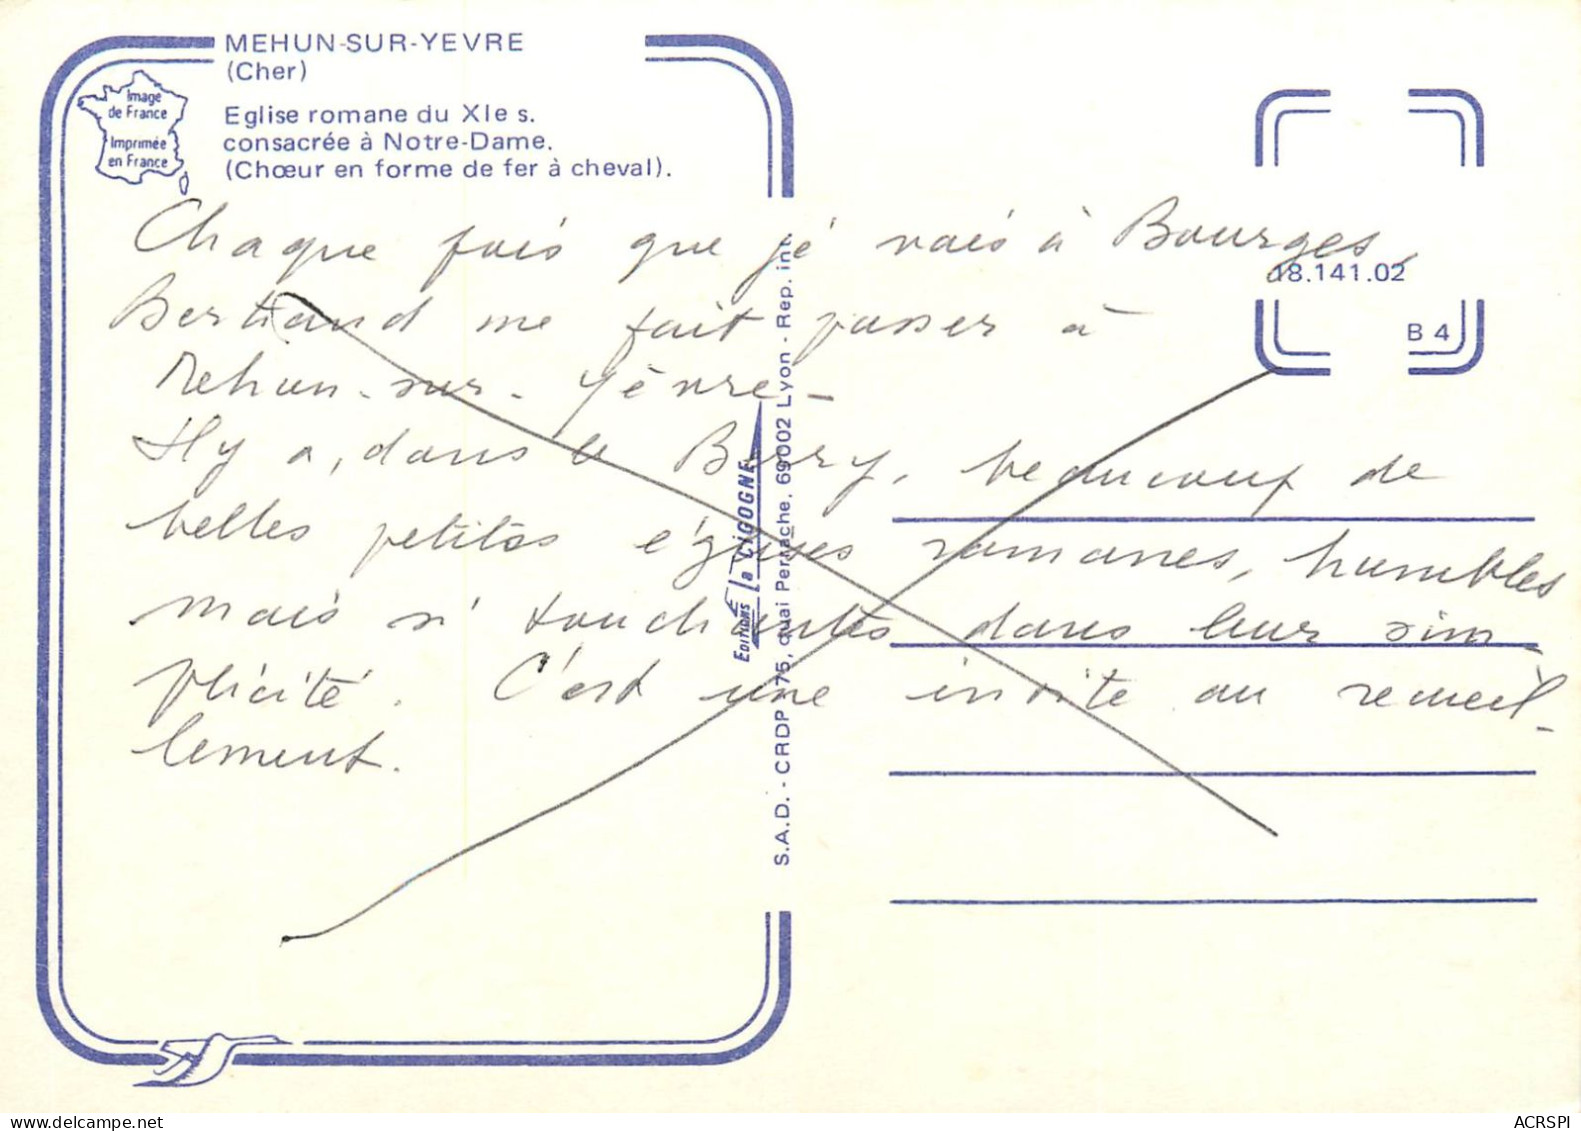 MEHUN-SUR-YEVRE
(Cher)
Image
de France
Imprimée
en France
Eglise romane du XIe s.
consacrée à Notre-Dame.
(Chœur en forme de fer à cheval).
Chaque fois que je vais à Bourges,
Bertrand me fait passer à
Mehun-sur-Yèvre-
Il y a, dans le Berry, beaucoup de
belles petites églises romanes, humbles
mais si touchantes dans leur sim-
plicité. C'est une invite au recueil-
lement.
18.141.02
B 4
Editions La CIGOGNE
S.A.D. - CRDP - 75, quai Perrache, 69002 Lyon - Rep. int.
ACRSPI